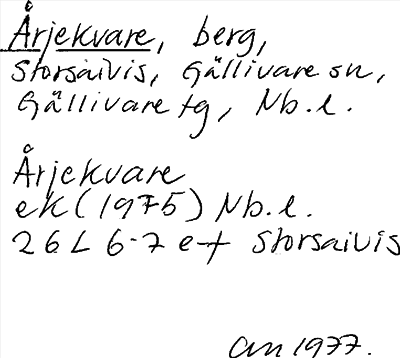 Årjekvare, berg,
Storsaivis, Gällivare sn,
Gällivare tg, Nb. l.
Årjekvare
ek (1975) Nb. l.
26L 6-7 e-f Storsaivis
an 1977.